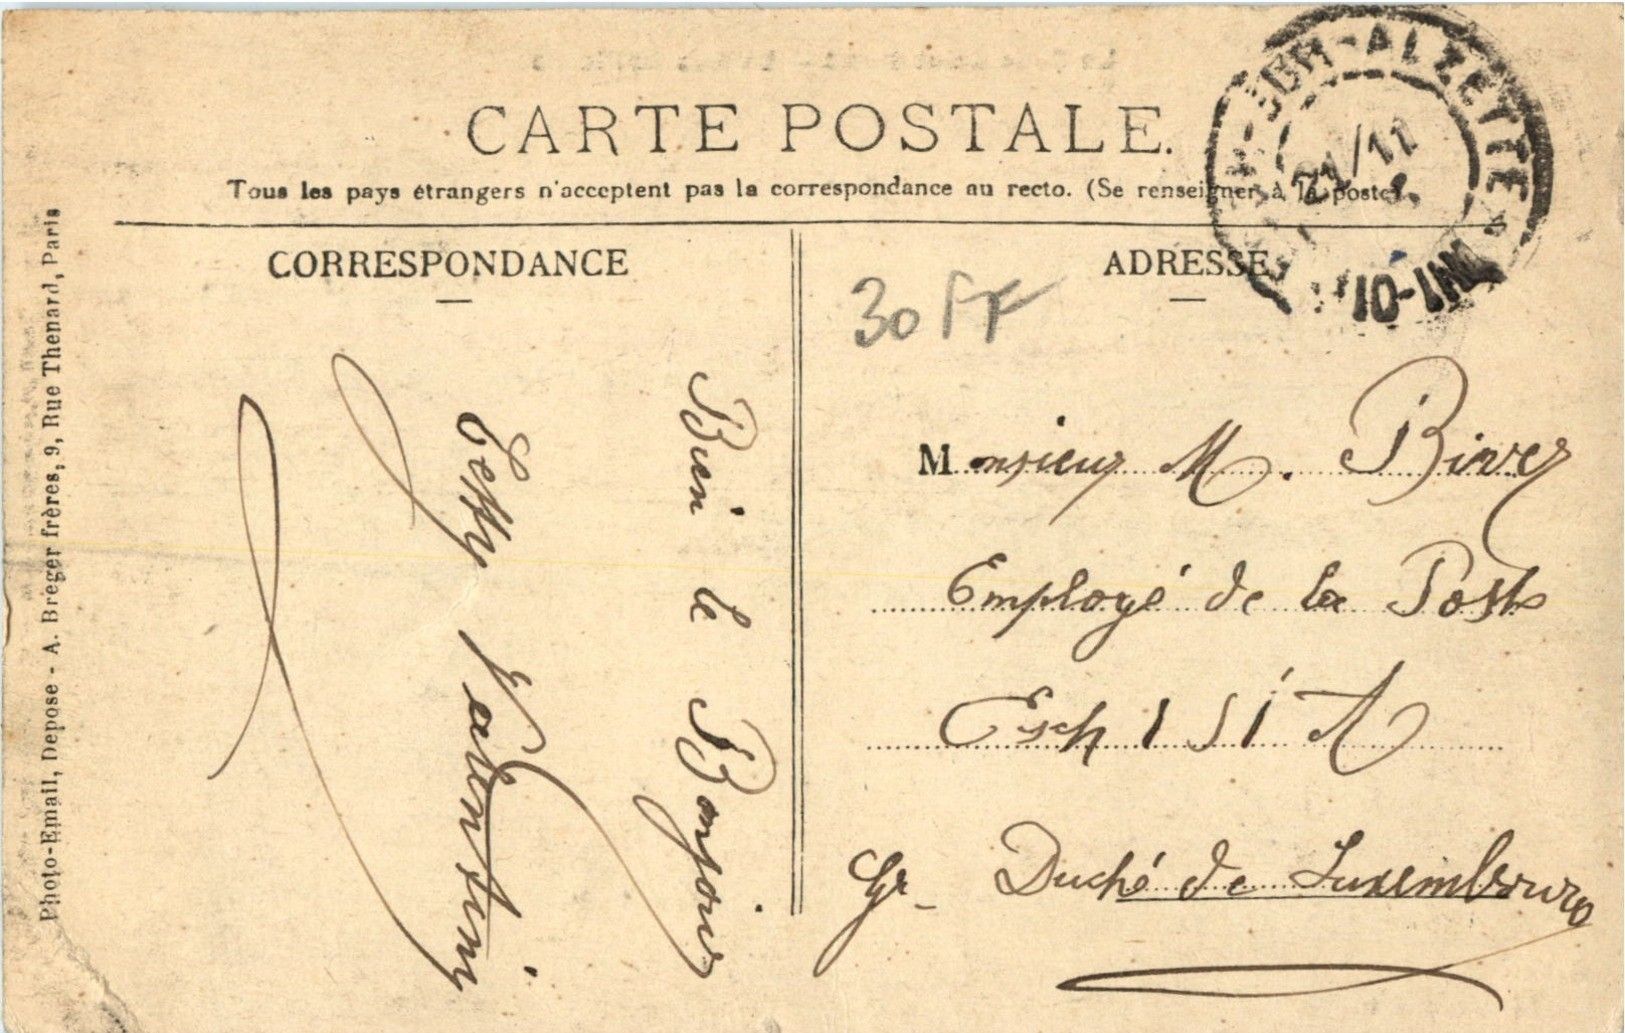 CARTE POSTALE.
Tous les pays étrangers n'acceptent pas la correspondance au recto. (Se renseigner à la poste).
CORRESPONDANCE
ADRESSE
ESCH-SUR-ALZETTE
21/11
10-11M
30 FF
Bien le Bonjour.
Jeffy Valentiny
Monsieur M. Biver
Employé de la Poste
Esch s/A
Gr. Duché de Luxembourg
Photo-Email, Depose - A. Breger frères, 9, Rue Thenard, Paris